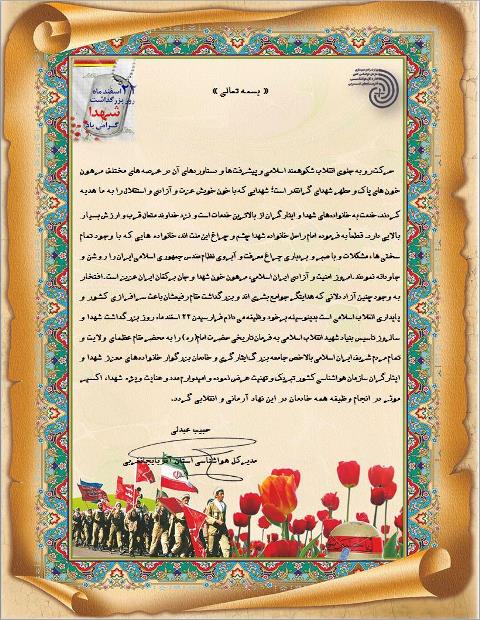 ۲۲ اسفند ماه
روز بزرگداشت
شهدا
گرامی باد
« بسمه تعالی »
حرکت رو به جلوی انقلاب شکوهمند اسلامی و پیشرفت ها و دستاوردهای آن در عرصه های مختلف مرهون
خون های پاک و مطهر شهدای گرانقدر است؛ شهدایی که با خون خویش عزت و آزادی و استقلال را به ما هدیه
کردند. خدمت به خانواده های شهدا و ایثارگران از بالاترین خدمات است و نزد خداوند متعال قرب و ارزش بسیار
بالایی دارد. قطعاً به فرموده امام راحل خانواده شهدا چشم و چراغ این ملت اند، خانواده هایی که با وجود تمام
سختی ها، مشکلات و با صبر و بردباری چراغ معرفت و آبروی نظام مقدس جمهوری اسلامی ایران را روشن و
جاودانه نمودند. امروز امنیت و آزادی ایران اسلامی، مرهون خون شهدا و جان برکفان ایران عزیز است. افتخار
به وجود چنین آزاد دلانی که هدایتگر جوامع بشری اند و بزرگداشت مقام رفیعشان باعث سرافرازی کشور و
پایداری انقلاب اسلامی است بدینوسیله بر خود وظیفه می دانم فرا رسیدن ۲۲ اسفند ماه، روز بزرگداشت شهدا و
سالروز تاسیس بنیاد شهید انقلاب اسلامی به فرمان تاریخی حضرت امام (ره) را به محضر مقام عظمای ولایت و
تمام مردم شریف ایران اسلامی بالاخص جامعه بزرگ ایثارگری و خادمان بزرگوار خانواده های معزز شهدا و
ایثارگران سازمان هواشناسی کشور تبریک و تهنیت عرض نموده و امیدوارم مدد و عنایت ویژه شهدا، اکسیر
موثر در انجام وظیفه همه خادمان در این نهاد آرمانی و انقلابی گردد.
حبیب عبدلی
مدیر کل هواشناسی استان آذربایجان غربی